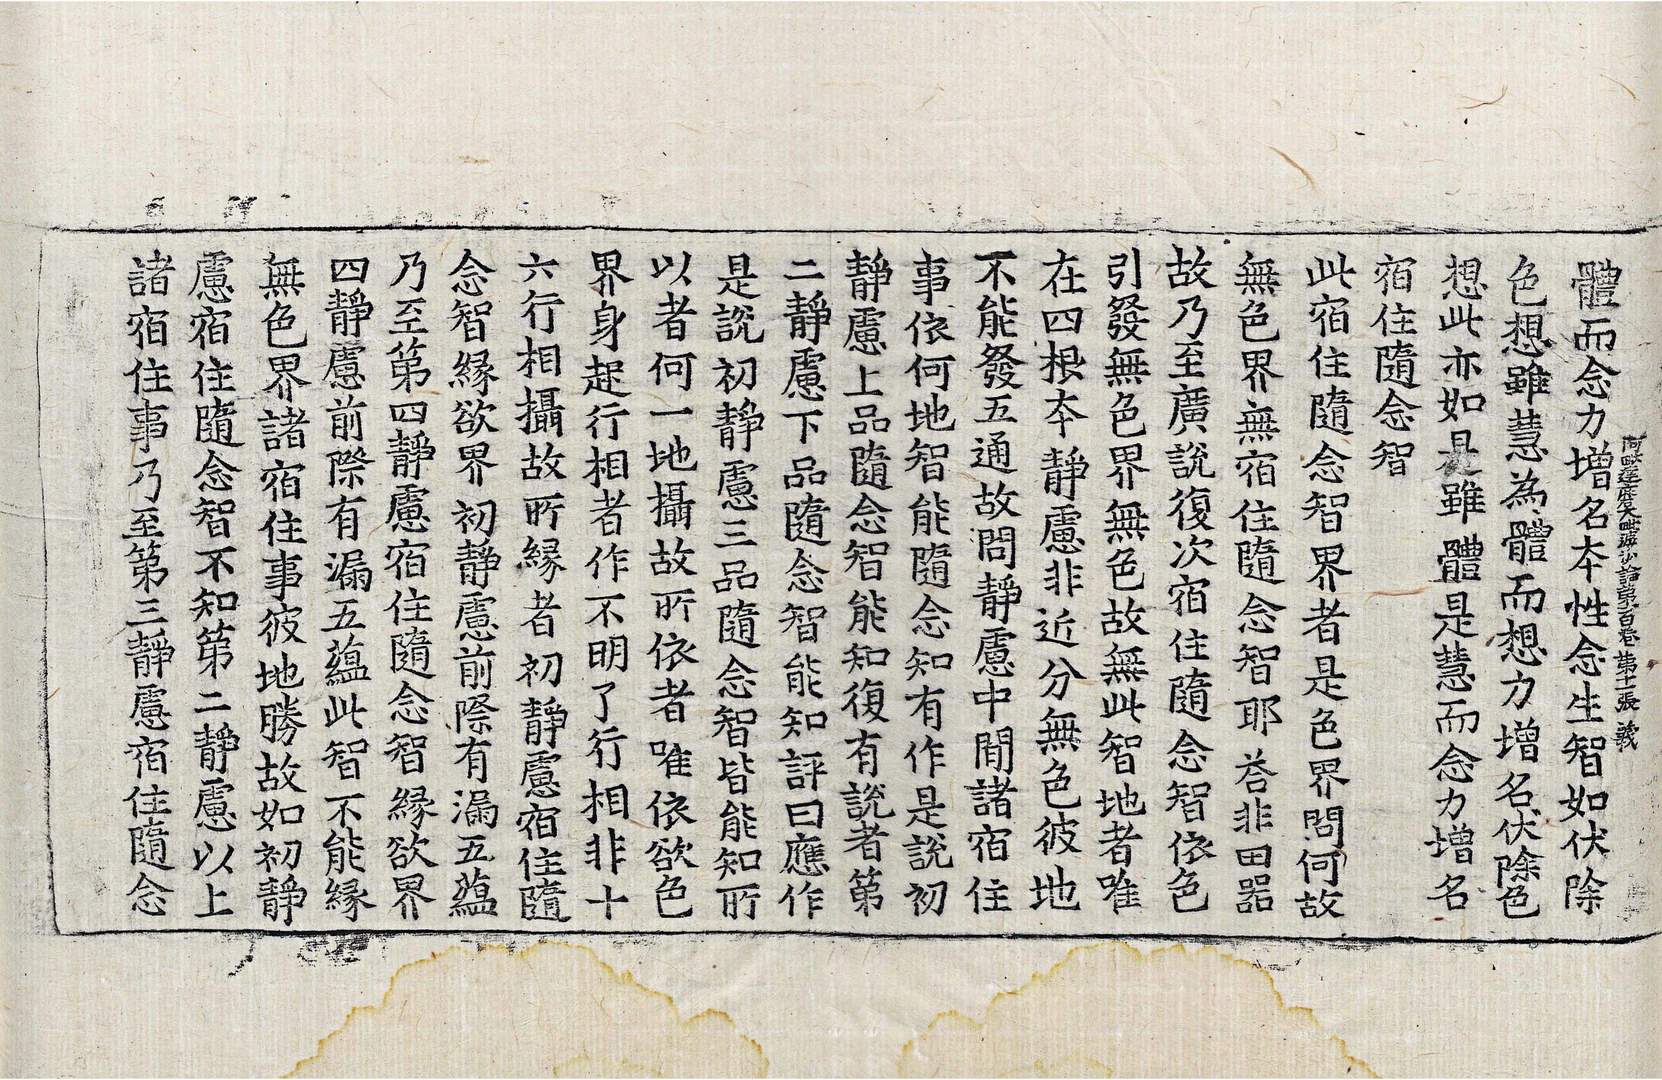 體而念力增名本性念生智如伏除
阿毗達磨大毗婆沙論第一百卷 第十二張 義
色想雖慧為體而想力增名伏除色
想此亦如是雖體是慧而念力增名
宿住隨念智
此宿住隨念智界者是色界問何故
無色界無宿住隨念智耶荅非田器
故乃至廣說復次宿住隨念智依色
引發無色界無色故無此智地者唯
在四根本靜慮非近分無色彼地
不能發五通故問靜慮中閒諸宿住
事依何地智能隨念知有作是說初
靜慮上品隨念智能知復有說者第
二靜慮下品隨念智能知評曰應作
是說初靜慮三品隨念智皆能知所
以者何一地攝故所依者唯依欲色
界身起行相者作不明了行相非十
六行相攝故所緣者初靜慮宿住隨
念智緣欲界初靜慮前際有漏五蘊
乃至第四靜慮宿住隨念智緣欲界
四靜慮前際有漏五蘊此智不能緣
無色界諸宿住事彼地勝故如初靜
慮宿住隨念智不知第二靜慮以上
諸宿住事乃至第三靜慮宿住隨念